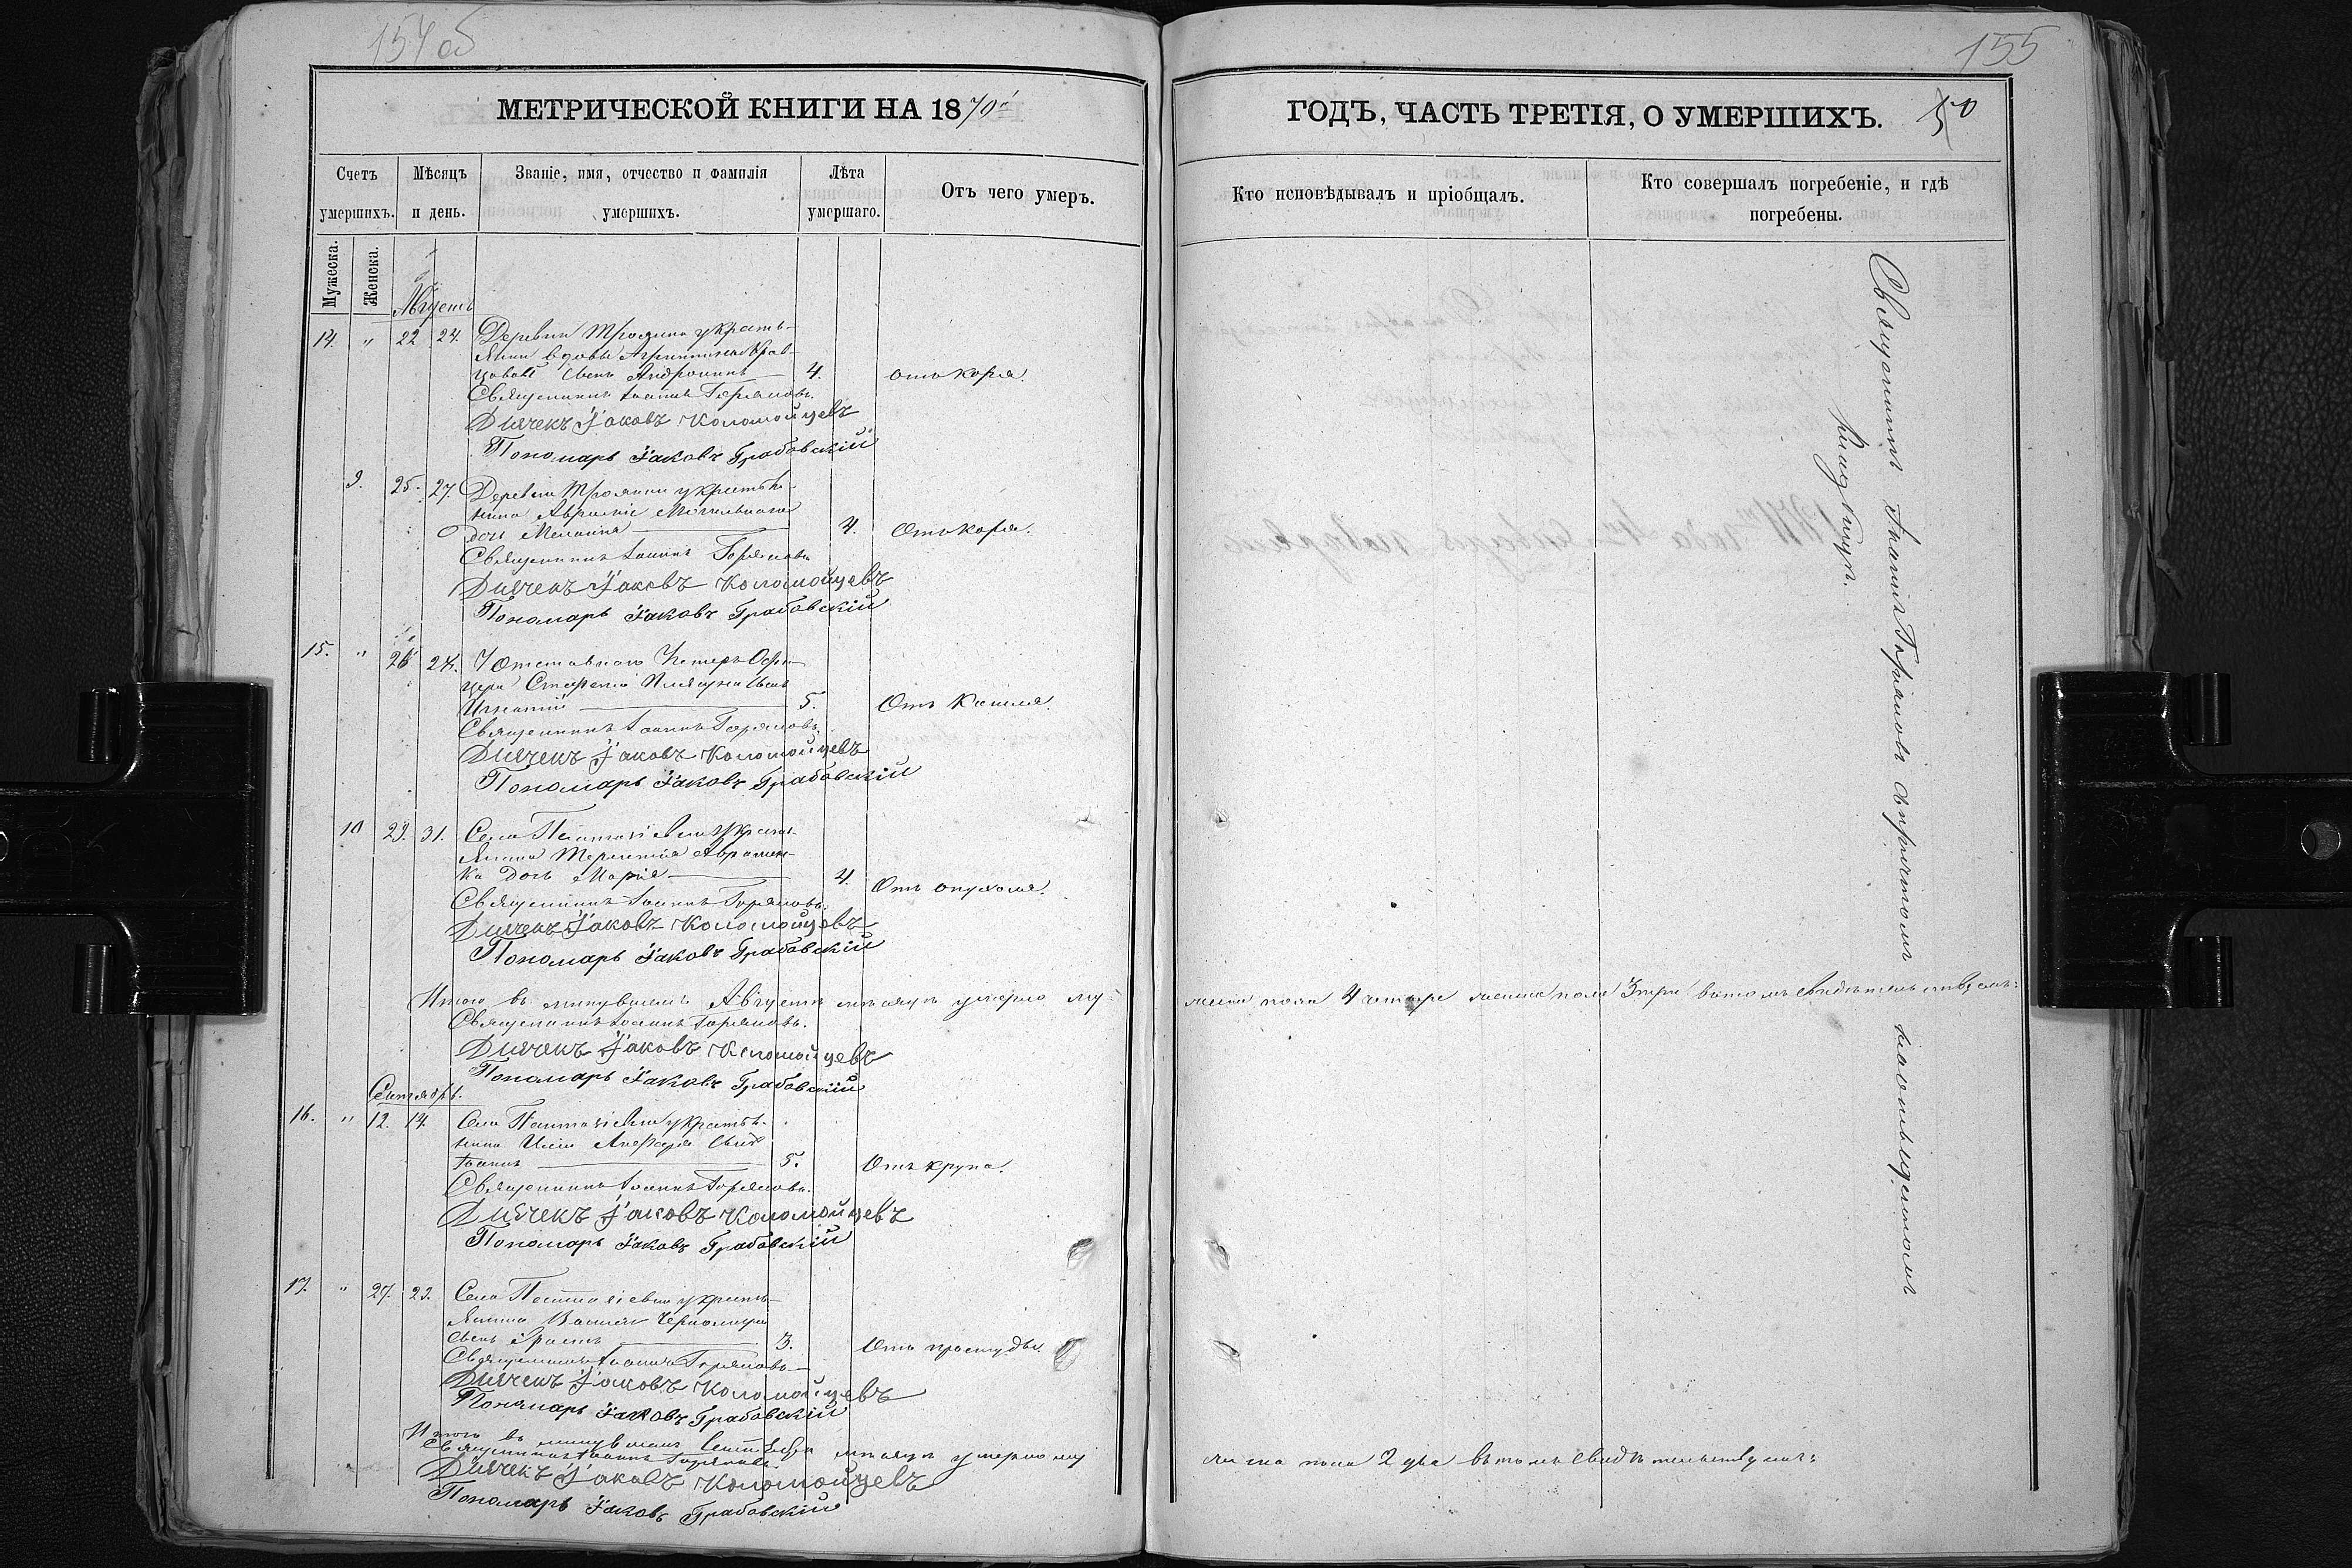 154 об
МЕТРИЧЕСКОЙ КНИГИ НА 1870й
Счетъ умершихъ.
Мѣсяцъ и день.
Званіе, имя, отчество и фамилія умершихъ.
Лѣта умершаго.
Отъ чего умеръ.
Мужеска.
Женска.
Августъ
14. " 22 24. Деревни Трояниц укресть-
янки вдовы Агрипины
цовой сынъ Андроникъ — 4. отъ коря.
Священникъ Іоаннъ Горяновъ.
Дьячекъ Іаковъ Коломойцевъ
Пономарь Іаковъ Грабовскій
9. 25. 27. Деревни Троянки укрестья-
нина
дочь Меланія — 4. Отъ коря.
Священникъ Іоаннъ Горяновъ
Дьячекъ Іаковъ Коломойцевъ
Пономарь Іаковъ Грабовскій
15. " 26 28. Уотставнаго Унтеръ Офи-
цера сынъ
Игнатій — 5. Отъ Кашля.
Священникъ Іоаннъ Горяновъ.
Дьячекъ Іаковъ Коломойцевъ
Пономарь Іаковъ Грабовскій
10 29. 31. Села укресть-
янина Терентія Авраменка
дочь Марія — 4. Отъ опухоля.
Священникъ Іоаннъ Горяновъ.
Дьячекъ Іаковъ Коломойцевъ
Пономарь Іаковъ Грабовскій
Итого въ минувшемъ Августѣ мѣсяцѣ умерло му-
Священникъ Іоаннъ Горяновъ.
Дьячекъ Іаковъ Коломойцевъ
Пономарь Іаковъ Грабовскій
Сентябрь.
16. " 12. 14. Села укрестья-
нина сынъ
Іоаннъ — 5. Отъ крупа.
Священникъ Іоаннъ Горяновъ.
Дьячекъ Іаковъ Коломойцевъ
Пономарь Іаковъ Грабовскій
17. " 27. 29. Села укресть-
янина Василія
сынъ — 3. Отъ простуды
Священникъ Іоаннъ Горяновъ
Дьячекъ Іаковъ Коломойцевъ
Пономарь Іаковъ Грабовскій
Итого въ минувшемъ Сентябрѣ мѣсяцѣ умерло му
Священникъ Іоаннъ Горяновъ.
Дьячекъ Іаковъ Коломойцевъ
Пономарь Іаковъ Грабовскій
155
ГОДЪ, ЧАСТЬ ТРЕТІЯ, О УМЕРШИХЪ.
50
Кто исповѣдывалъ и пріобщалъ.
Кто совершалъ погребеніе, и гдѣ погребены.
Священникъ Іоаннъ Горяновъ съ причтомъ на кладбищѣ.
жеска пола 4 четыре женска пола 3 три въ томъ свидѣтельствуемъ:
жеска пола 2 два въ томъ свидѣтельствуемъ: